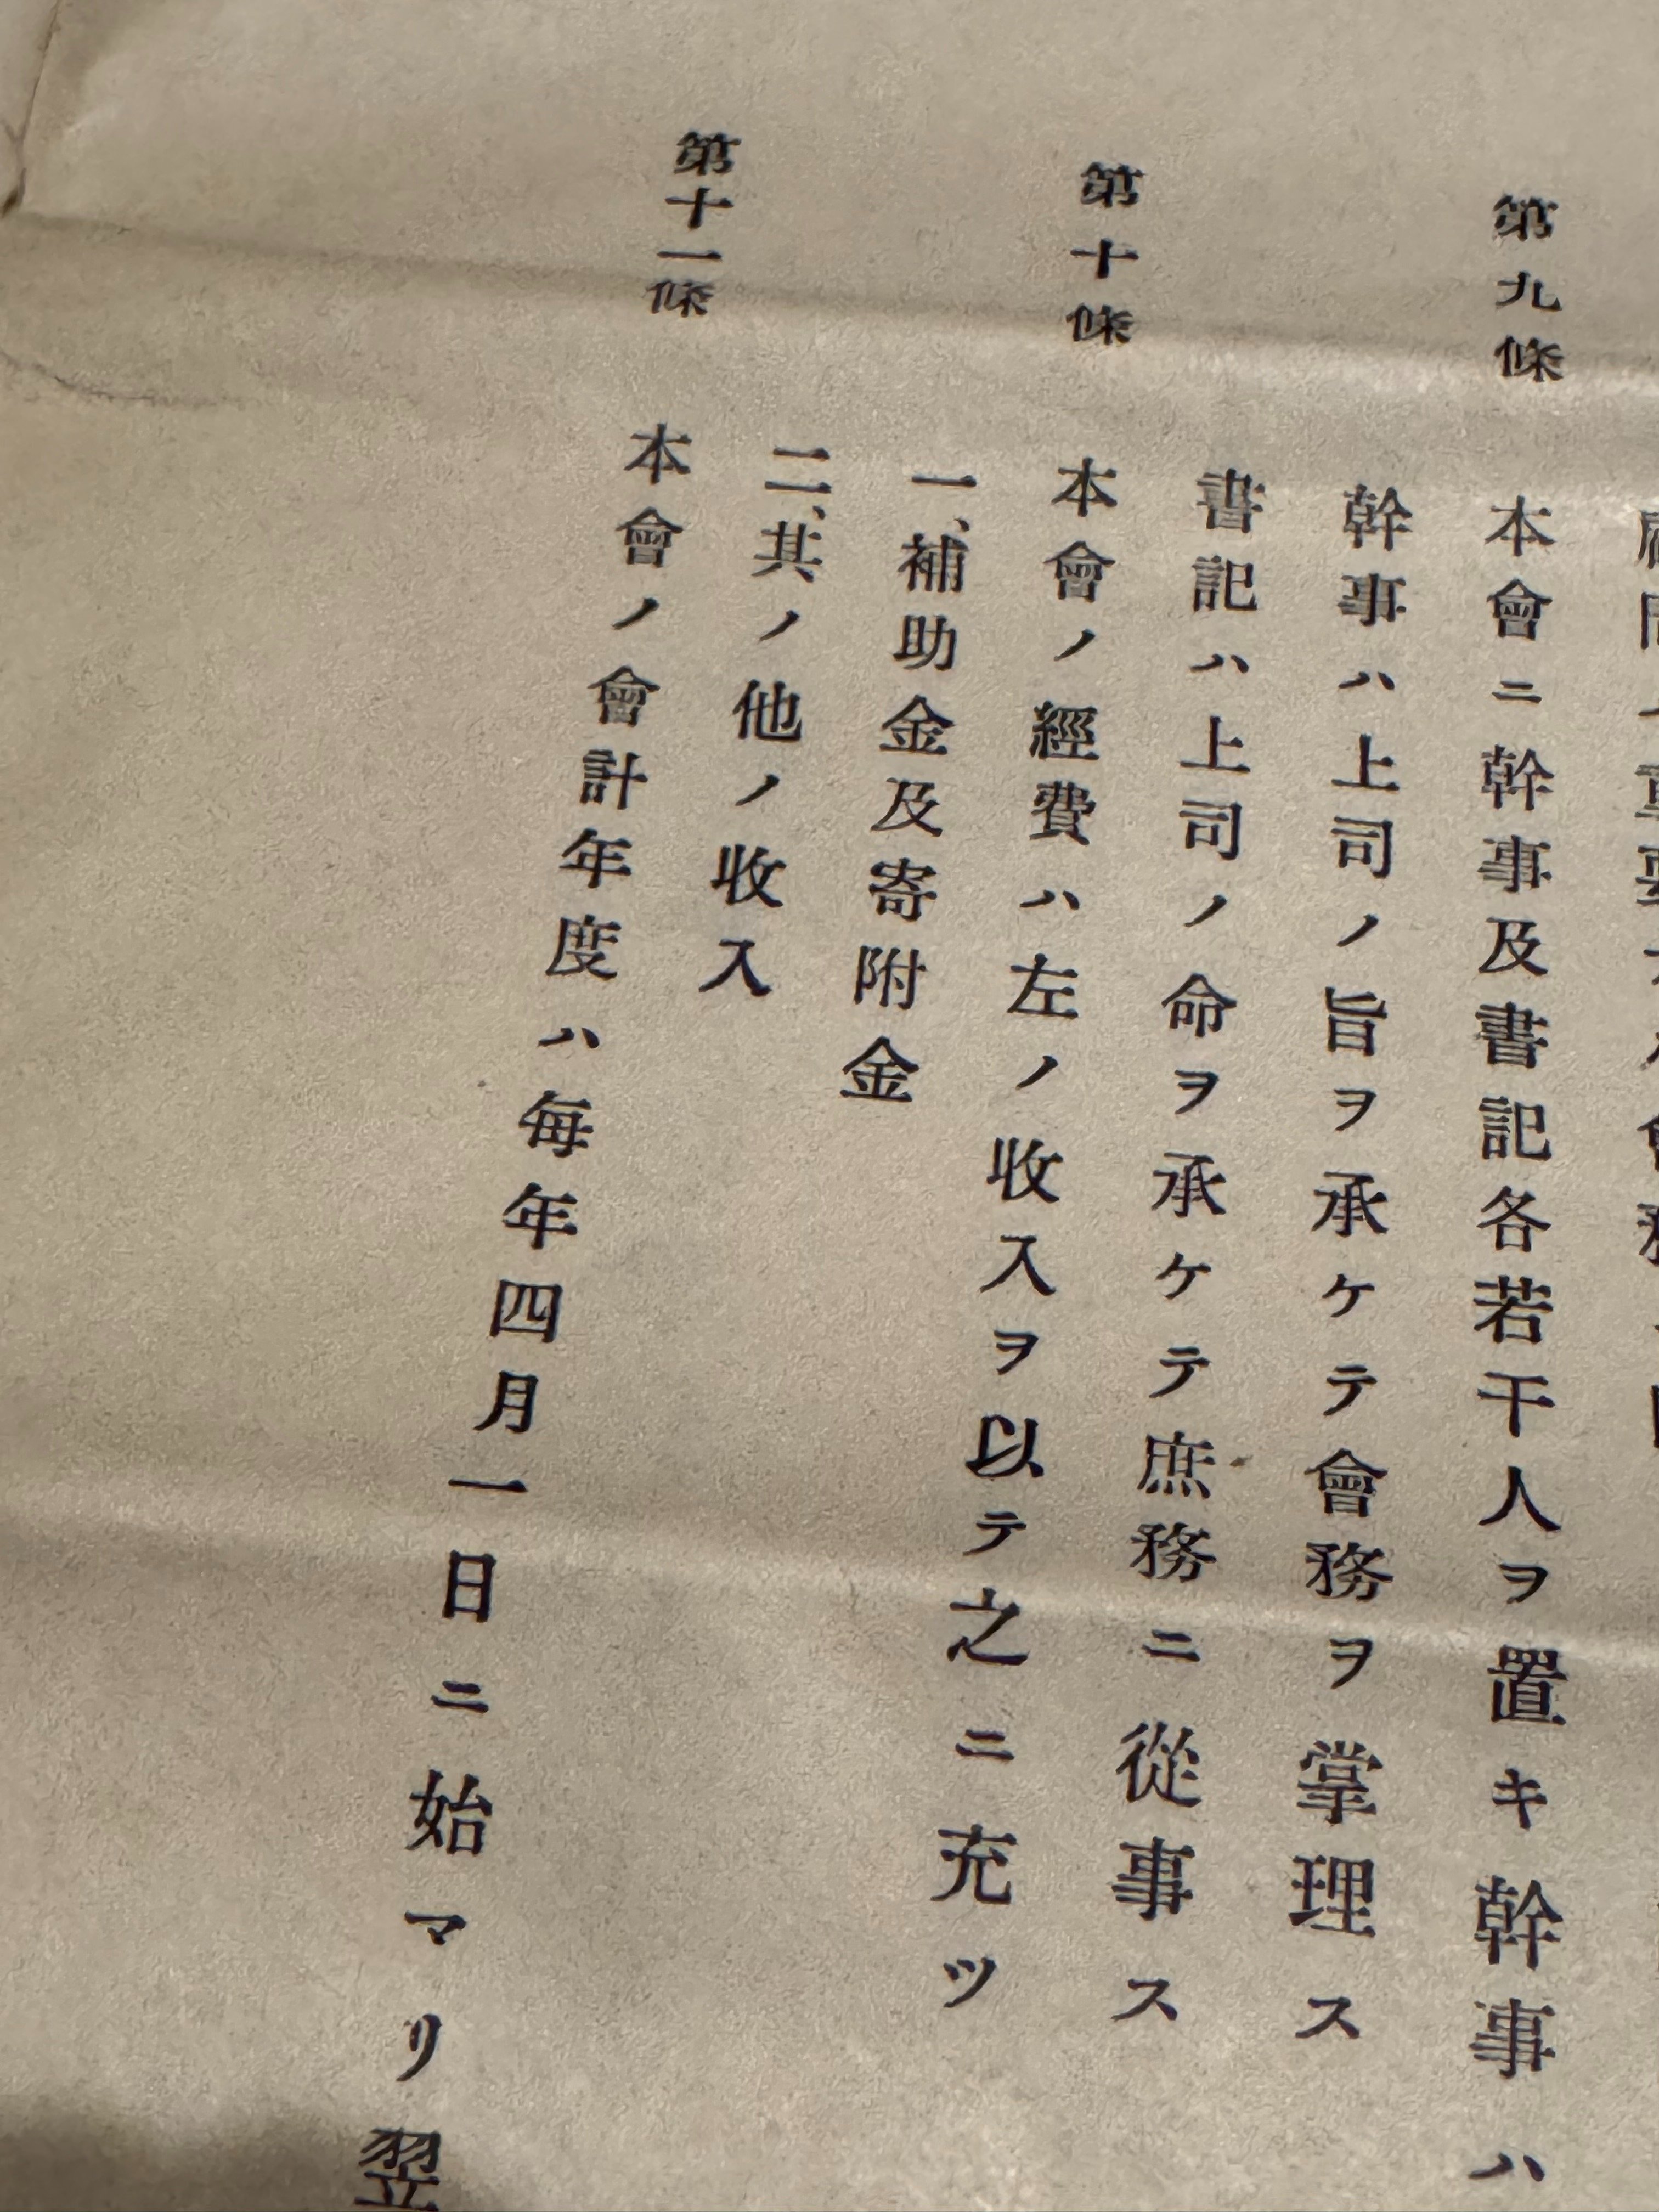 第九條　本會ニ幹事及書記各若干人ヲ置キ幹事ハ
幹事ハ上司ノ旨ヲ承ケテ會務ヲ掌理ス
書記ハ上司ノ命ヲ承ケテ庶務ニ從事ス
第十條　本會ノ經費ハ左ノ收入ヲ以テ之ニ充ツ
一、補助金及寄附金
二、其ノ他ノ收入
第十一條　本會ノ會計年度ハ每年四月一日ニ始マリ翌